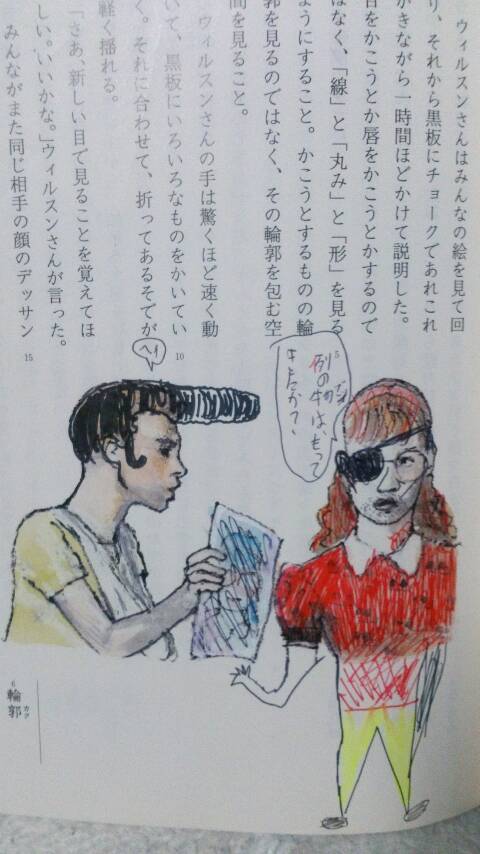 ウィルスンさんはみんなの絵を見て回
り、それから黒板にチョークであれこれ
かきながら一時間ほどかけて説明した。
目をかこうとか唇をかこうとかするので
はなく、「線」と「丸み」と「形」を見る
5
ようにすること。かこうとするものの輪
郭を見るのではなく、その輪郭を包む空
間を見ること。
ウィルスンさんの手は驚くほど速く動
いて、黒板にいろいろなものをかいてい
10
く。それに合わせて、折ってあるそでが
軽く揺れる。
「さあ、新しい目で見ることを覚えてほ
しい。いいかな。」ウィルスンさんが言った。
みんながまた同じ相手の顔のデッサン
15
例の物はもって
ブツ
きたか
ヘイ
6 輪郭
カク